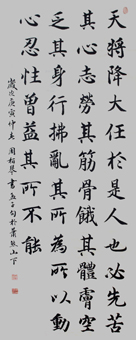 天將降大任於是人也必先苦
其心志勞其筋骨餓其體膚空
乏其身行拂亂其所為所以動
心忍性曾益其所不能
歲次庚寅仲夏周書孟子句於蕭然山下